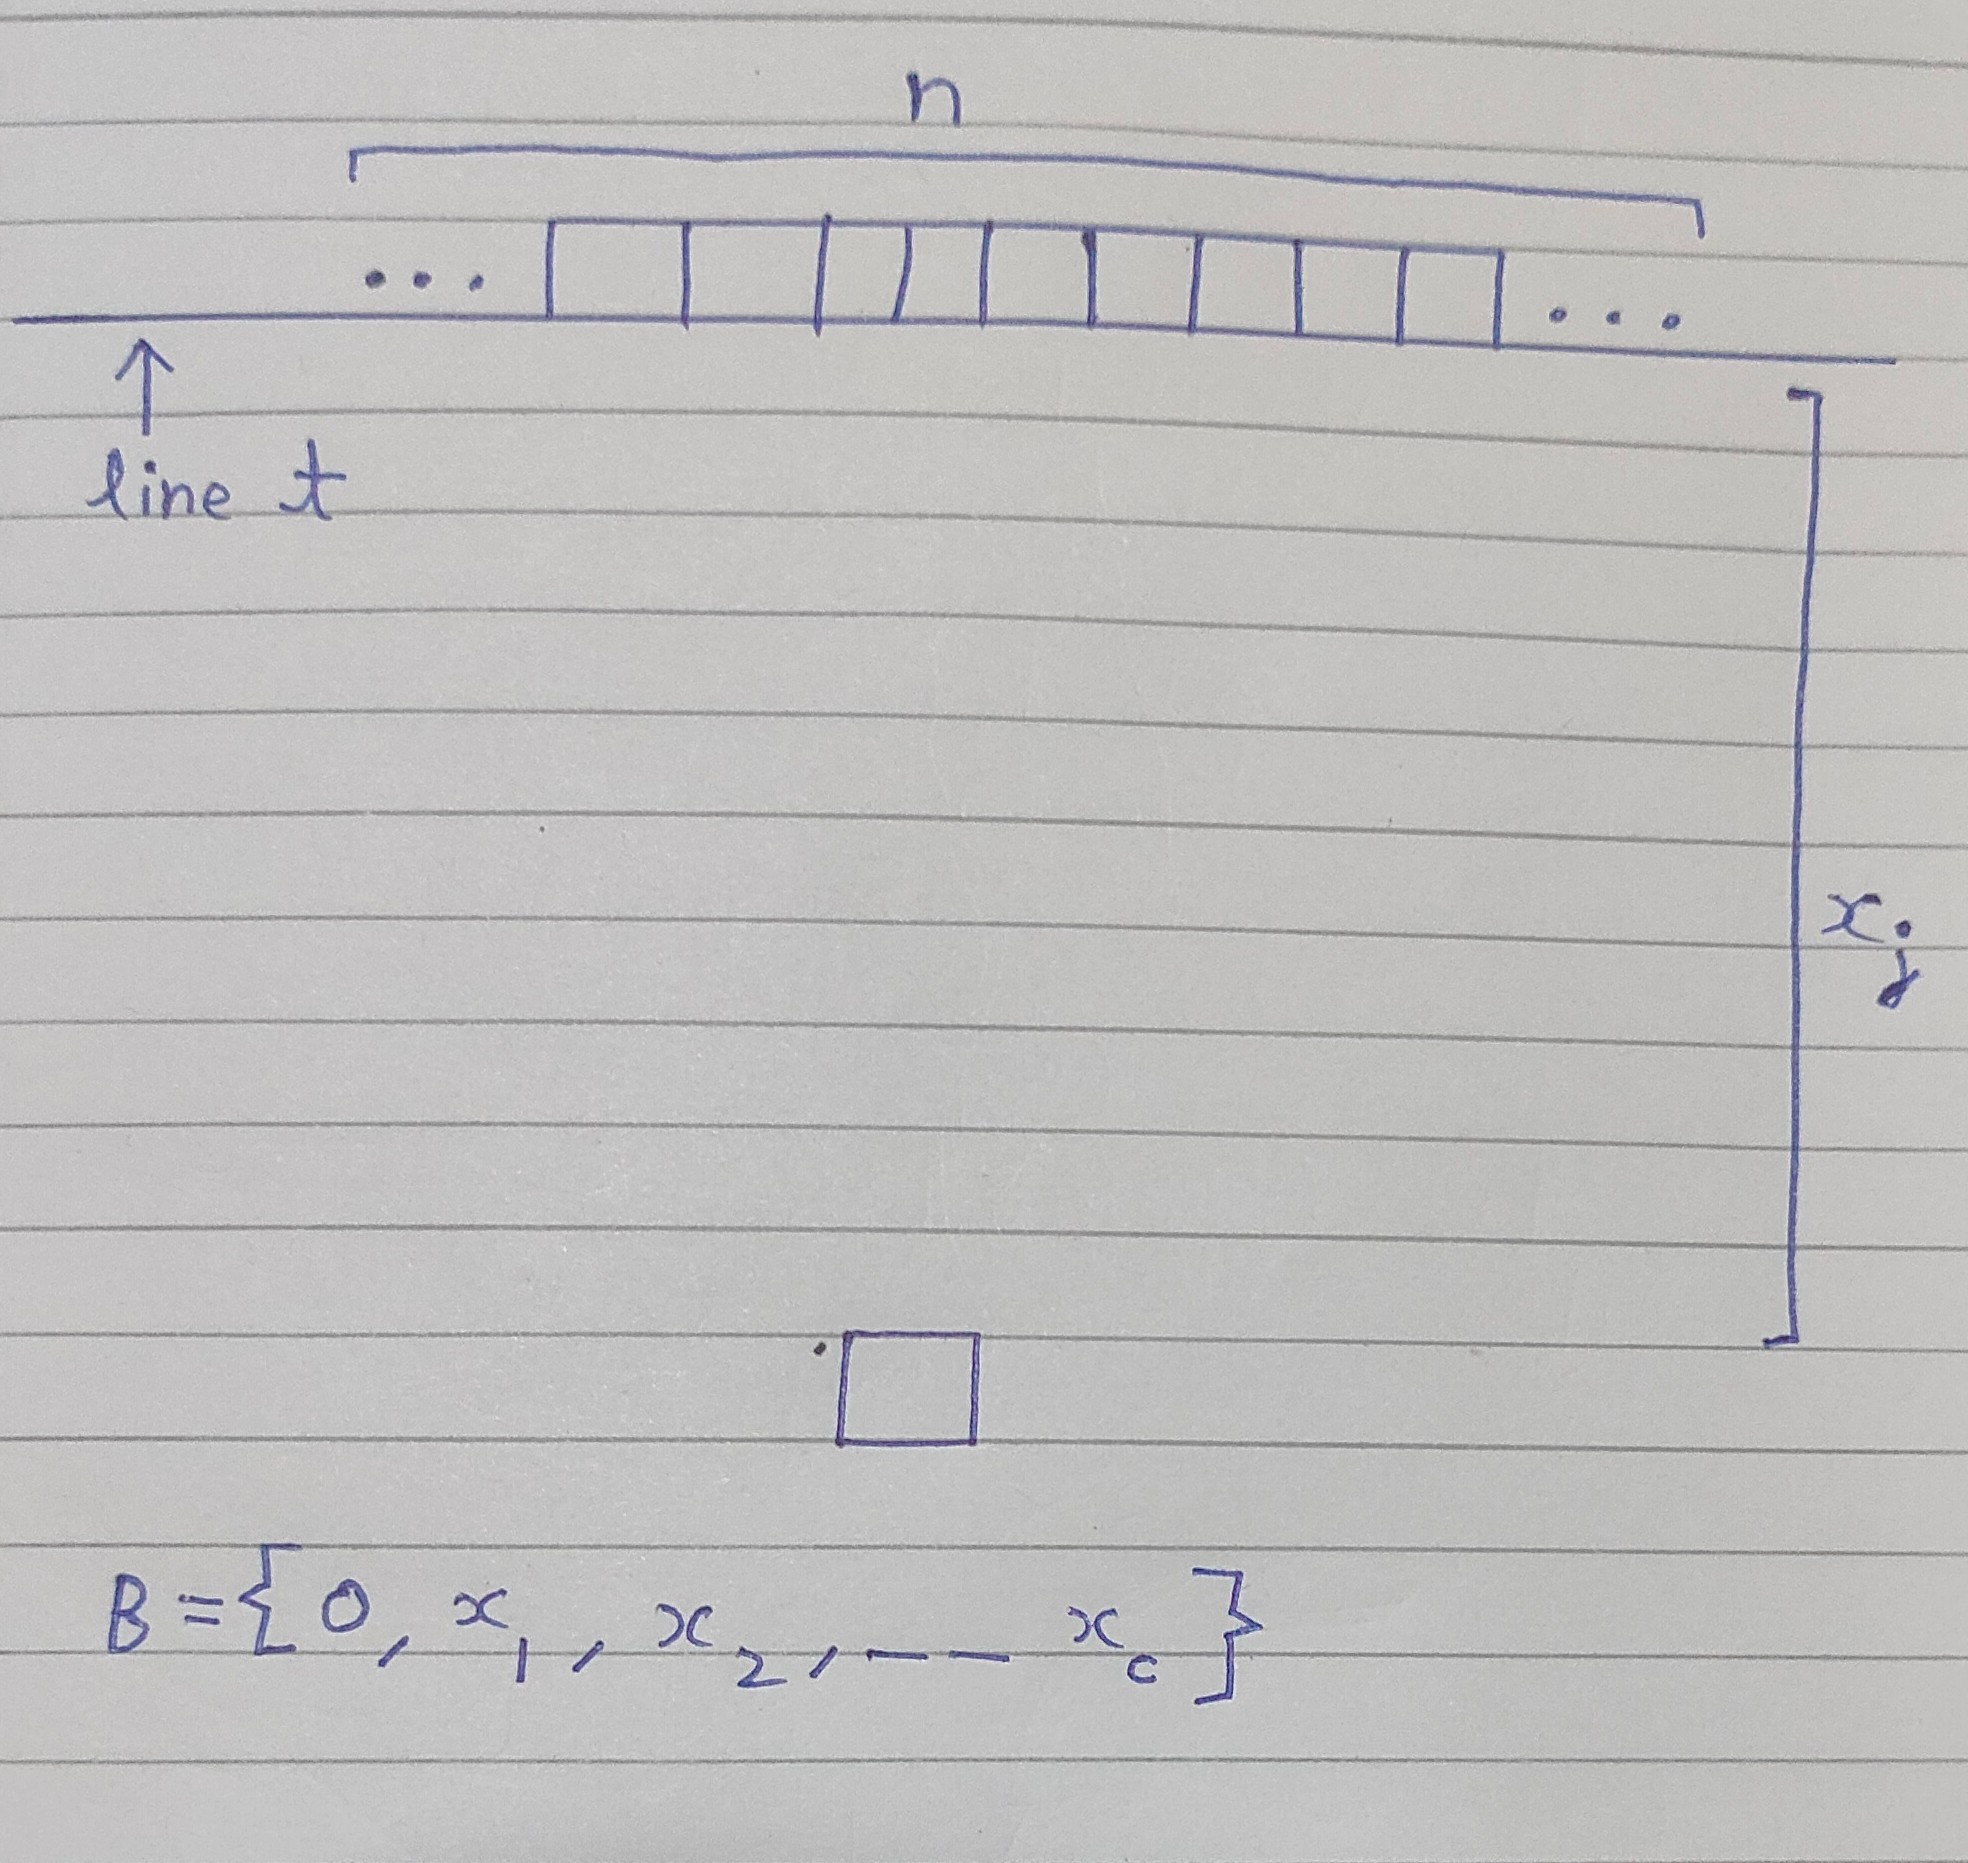 n
...
...
line t
x_j
B = {0, x_1, x_2, -- x_c}